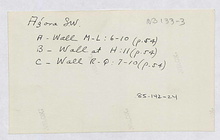 Agora SW.
A - Wall M-L: 6-10 (p.54)
B - Wall at H:11 (p.54)
C - Wall R-Q: 7-10 (p.54)
85-142-24